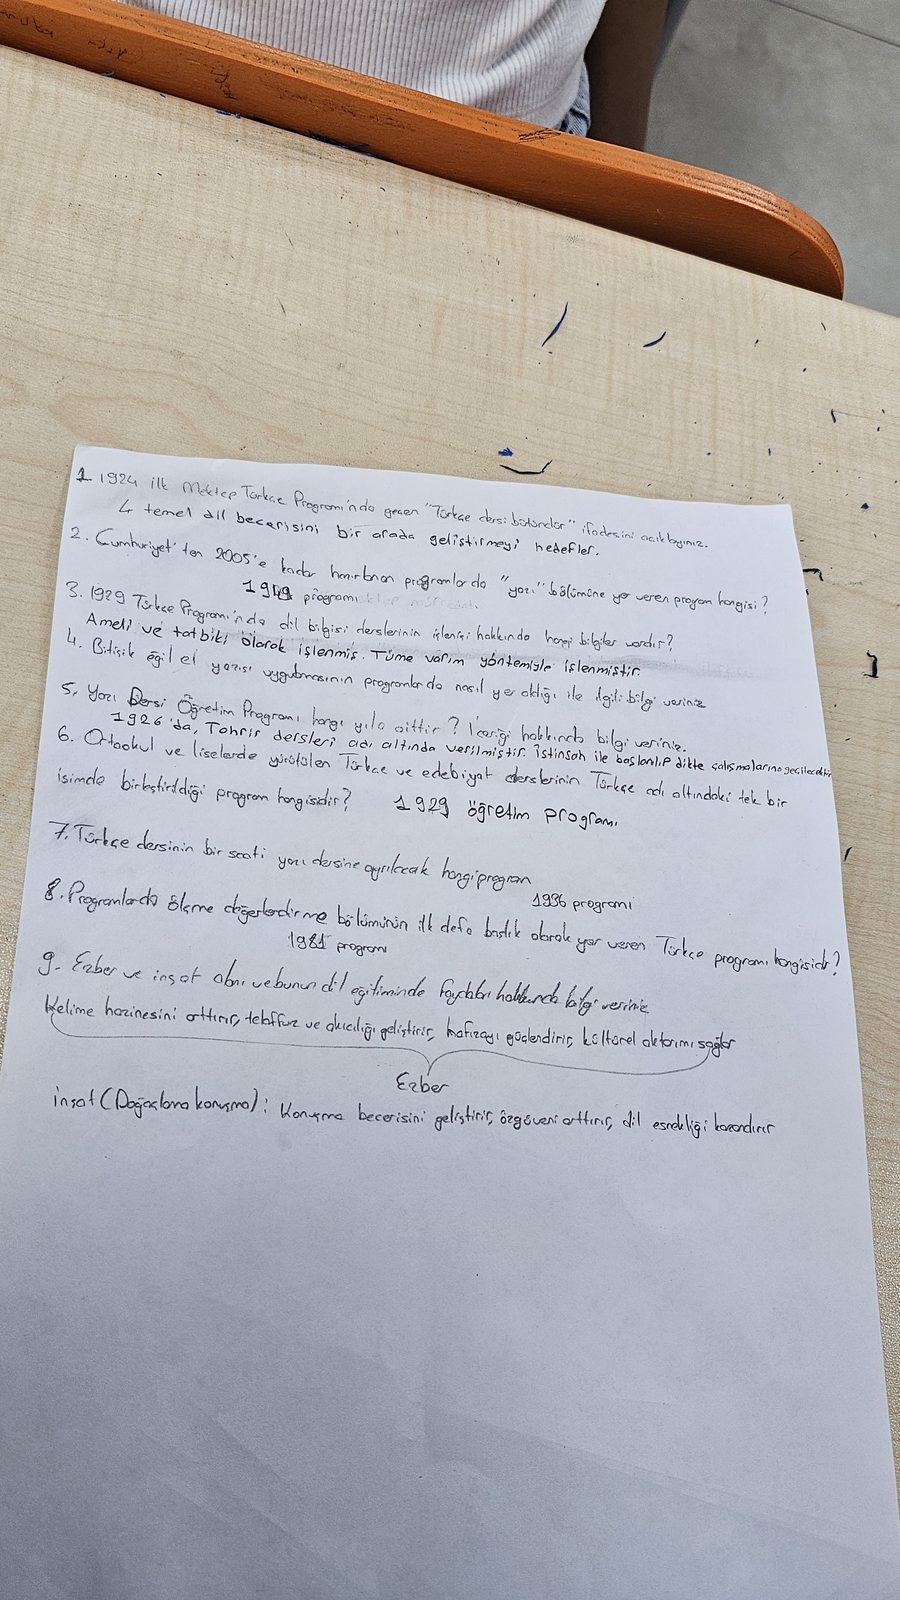 1. 1924 ilk Mektep Türkçe Programı'nda geçen "Türkçe dersi bütündür" ifadesini açıklayınız.
4 temel dil becerisini bir arada geliştirmeyi hedefler.
2. Cumhuriyet'ten 2005'e kadar hazırlanan programlarda "yazı" bölümüne yer veren program hangisi?
programı
3. 1929 Türkçe Programı'nda dil bilgisi derslerinin işlenişi hakkında hangi bilgiler vardır?
Ameli ve tatbiki olarak işlenmiş. Tüme varım yöntemiyle işlenmiştir.
4. Bitişik eğil el yazısı uygulmasının programlarda nasıl yer aldığı ile ilgili bilgi veriniz
5. Yazı Dersi Öğretim Programı hangi yıla aittir? İçeriği hakkında bilgi veriniz.
1926'da, Tahrir dersleri adı altında verilmiştir. İstinsah ile başlanlıp dikte çalışmalarına geçilecektir
6. Ortaokul ve liselerde yürütülen Türkçe ve edebiyat derslerinin Türkçe adı altındaki tek bir
isimde birleştirildiği program hangisidir? 1929 öğretim programı
7. Türkçe dersinin bir saati yazı dersine ayrılacak hangi program
1936 programı
8. Programlarda ölçme değerlendirme bölümünün ilk defa başlık olarak yer veren Türkçe programı hangisidir?
1981 programı
9. Ezber ve inşat alanı ve bunun dil eğitiminde faydaları hakkında bilgi veriniz
Kelime hazinesini arttırır, telaffuz ve akıcılığı geliştirir, hafızayı güçlendirir, kültürel aktarımı sağlar
Ezber
inşat (Doğaçlama konuşma): Konuşma becerisini geliştirir, özgüveni arttırır, dil esnekliği kazandırır